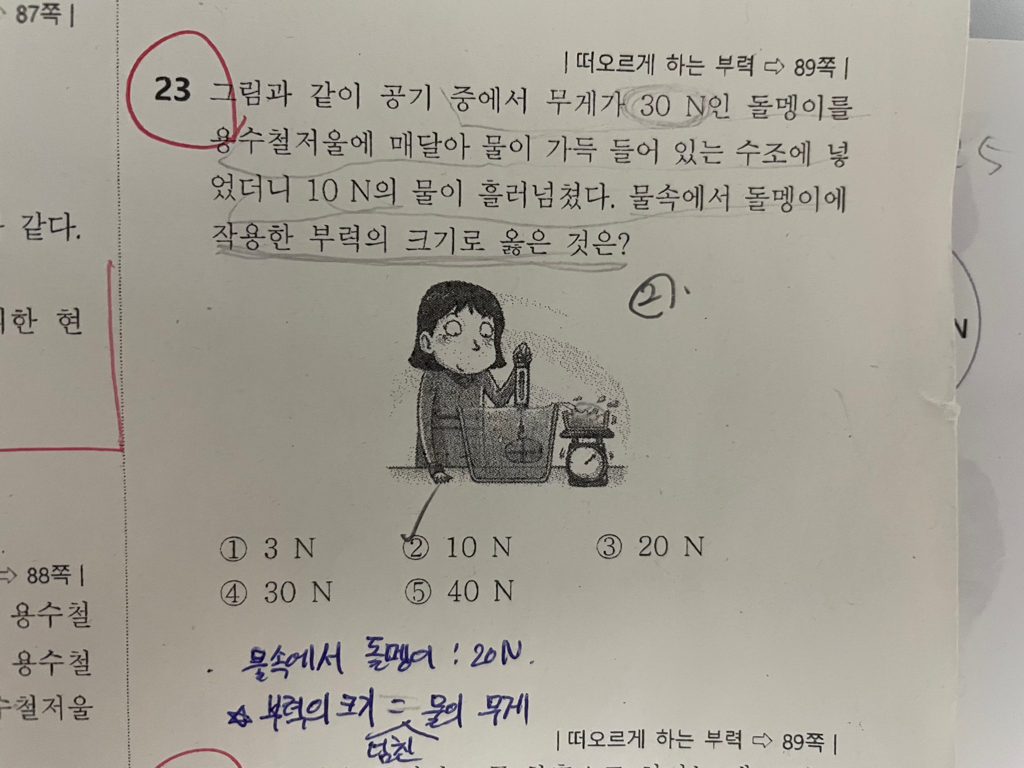 87쪽 |
| 떠오르게 하는 부력 ⇨ 89쪽 |
23 그림과 같이 공기 중에서 무게가 30 N인 돌멩이를
용수철저울에 매달아 물이 가득 들어 있는 수조에 넣
었더니 10 N의 물이 흘러넘쳤다. 물속에서 돌멩이에
작용한 부력의 크기로 옳은 것은?
같다.
한 현
2).
① 3 N ② 10 N ③ 20 N
④ 30 N ⑤ 40 N
⇨ 88쪽 |
용수철
용수철
수철저울
물속에서 돌멩이 : 20N.
☆ 부력의 크기 = 물의 무게
넘친
| 떠오르게 하는 부력 ⇨ 89쪽 |
N